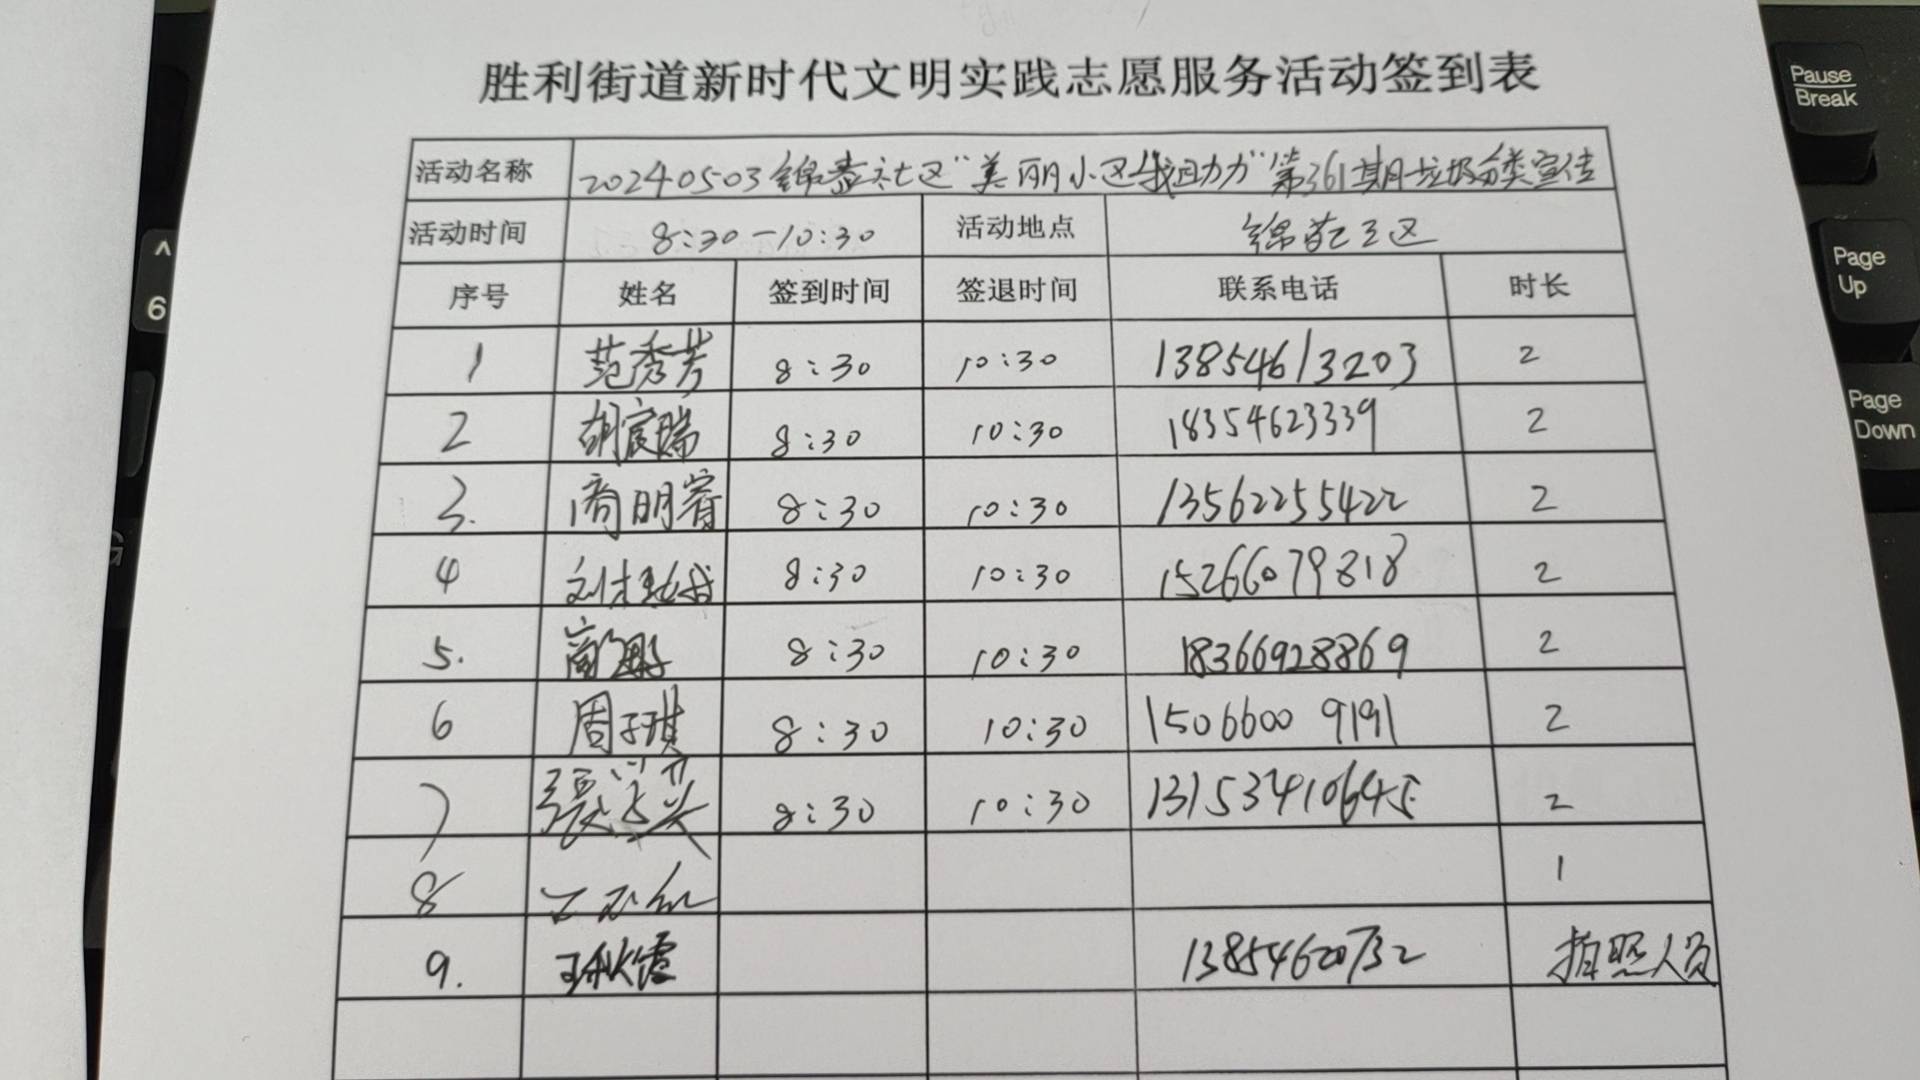 胜利街道新时代文明实践志愿服务活动签到表
活动名称 20240503锦泰社区“美丽小区我助力”第361期垃圾分类宣传
活动时间 8:30-10:30 活动地点 锦苑三区
序号 姓名 签到时间 签退时间 联系电话 时长
1 范秀芳 8:30 10:30 13854613203 2
2 胡宸瑞 8:30 10:30 18354623339 2
3. 商明睿 8:30 10:30 13562255422 2
4 刘 8:30 10:30 15266079818 2
5. 8:30 10:30 18366928869 2
6 周子琪 8:30 10:30 15066009191 2
7 张 英 8:30 10:30 13153410645 2
8 1
9. 王秋霞 13854620732 拍照人员
Pause
Break
Page
Up
Page
Down
^
6
G